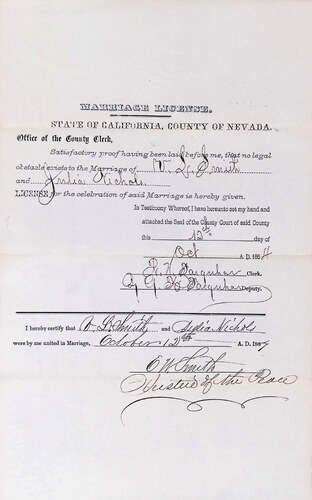 MARRIAGE LICENSE.
STATE OF CALIFORNIA, COUNTY OF NEVADA.
Office of the County Clerk,
Satisfactory proof having been laid before me, that no legal
obstacle exists to the Marriage of W. L. Smith
and Lydia Nichols
LICENSE for the celebration of said Marriage is hereby given.
In Testimony Whereof, I have hereunto set my hand and
attached the Seal of the County Court of said County
this 12th day of
Oct A. D. 186
R. H. Farquhar Clerk.
By G. K. Farquhar Deputy.
I hereby certify that W L Smith and Lydia Nichols
were by me united in Marriage, October 12th A. D. 186
O W Smith
Justice of the Peace